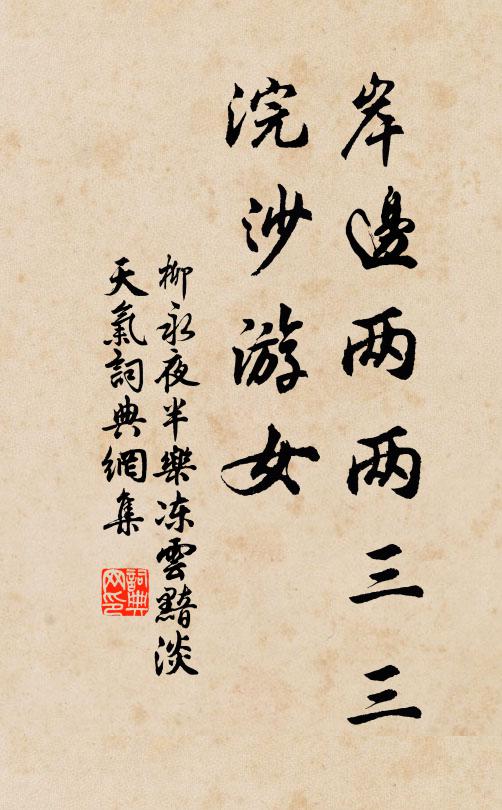 岸邊两两三三
浣沙游女
柳永夜半樂冻雲黯淡
天氣詞典網集
詞典
网印